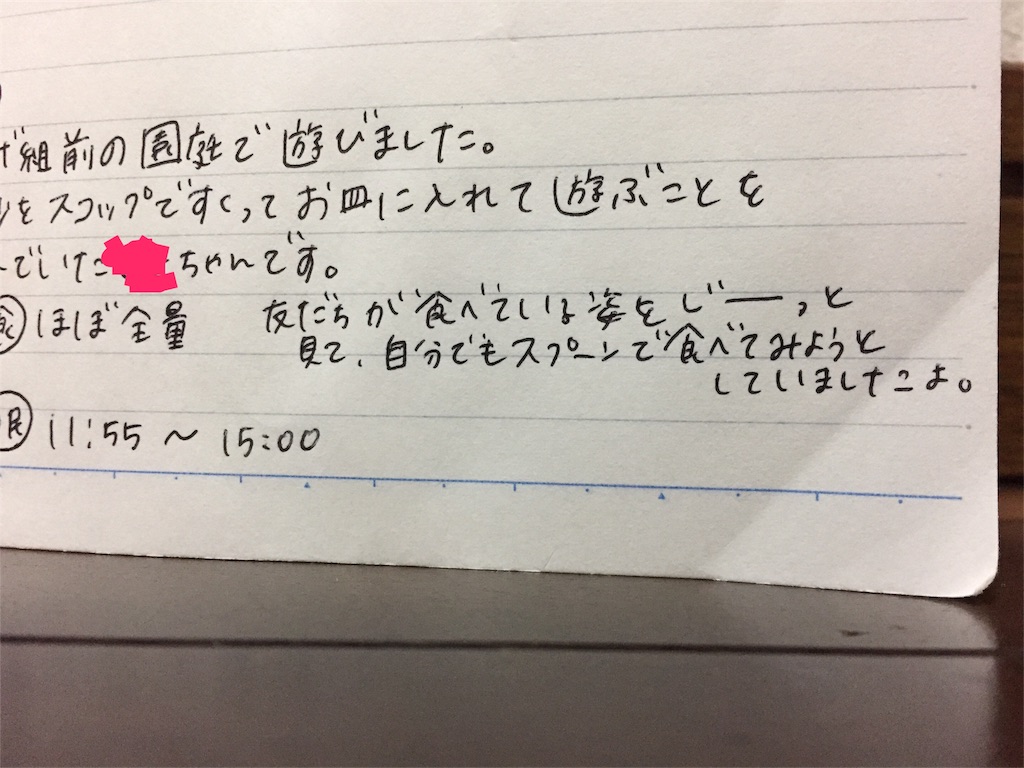 組前の園庭で遊びました。
をスコップですくってお皿に入れて遊ぶことを
でいた ちゃんです。
食 ほぼ全量 友だちが食べている姿をじーーっと
見て、自分でもスプーンで食べてみようと
していましたよ。
眠 11:55 〜 15:00